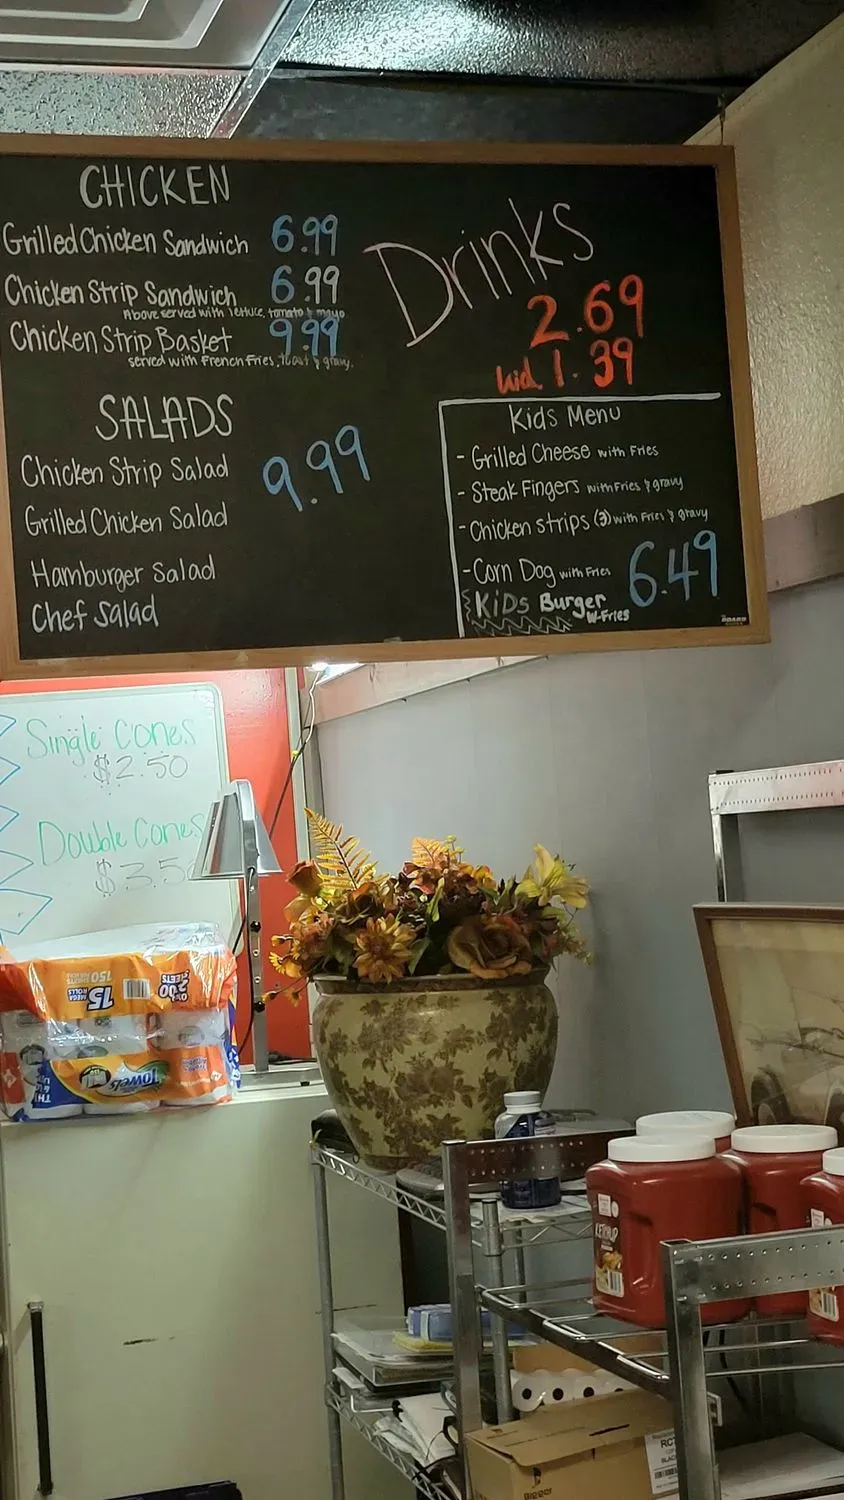 CHICKEN
Grilled Chicken Sandwich 6.99
Chicken Strip Sandwich 6.99
Above served with lettuce, tomato & mayo
Chicken Strip Basket 9.99
served with French Fries, toast & gravy.
SALADS
9.99
Chicken Strip Salad
Grilled Chicken Salad
Hamburger Salad
Chef Salad
Drinks
2.69
kid 1.39
Kids Menu
- Grilled Cheese with Fries
- Steak Fingers with Fries & gravy
- Chicken strips (3) with Fries & gravy
- Corn Dog with Fries
KiDs Burger
W-Fries
6.49
Single Cones
$2.50
Double Cones
$3.50
15
MEGA ROLLS
150 SHEETS
Towels
KETCHUP